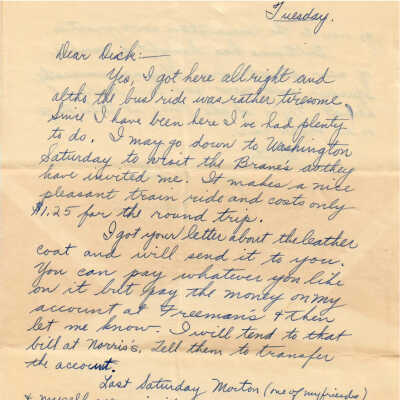 Tuesday.
Dear Dick:—
Yes, I got here allright and
altho the bus ride was rather tiresome.
Since I have been here I've had plenty
to do. I may go down to Washington
Saturday to visit the Brane's as they
have invited me. It makes a nice
pleasant train ride and costs only
$1.25 for the round trip.
I got your letter about the leather
coat and will send it to you.
You can pay whatever you like
on it but pay the money on my
account at Freeman's & then
let me know. I will tend to that
bill at Norris's. Tell them to transfer
the account.
Last Saturday Morton (one of my friends)
& myself